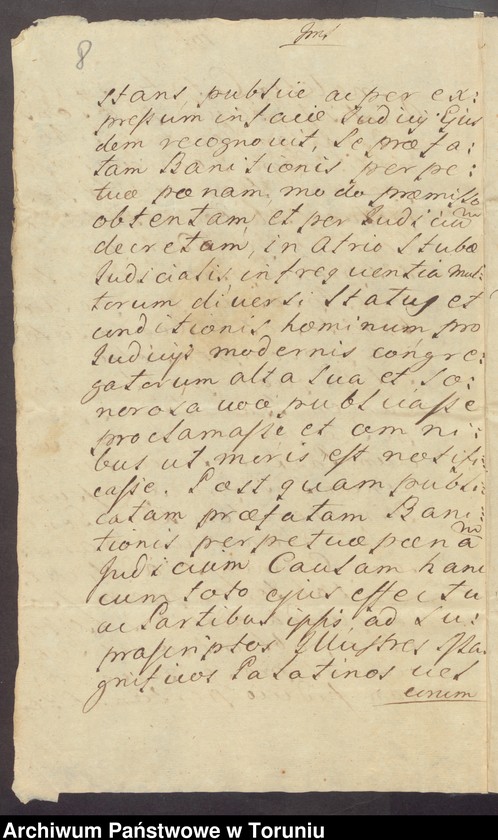 8
stans, publice ac per ex:
pressum in facie Judicij Ejus
dem recognovit, Se præfa:
tam Banitionis perpe:
tuæ pœnam, modo præmisso
obtentam, et per Judicium
decretam, in Atrio Stubæ
Judicialis, infrequentia mul:
torum diversi Status et
conditionis hominum pro
Judicijs modernis congre:
gatorum alta sua et so:
norosa voce publicasse
proclamasse et omni:
bus ut moris est notifi:
casse. Postquam publi:
catam præfatam Bani:
tionis perpetuæ pœnam
Judicium Causam hanc
cum toto ejus effectu
ac Partibus ipsis ad Su:
prascriptos Illustres Ma:
gnificos Palatinos vel
eorum
Archiwum Państwowe w Toruniu